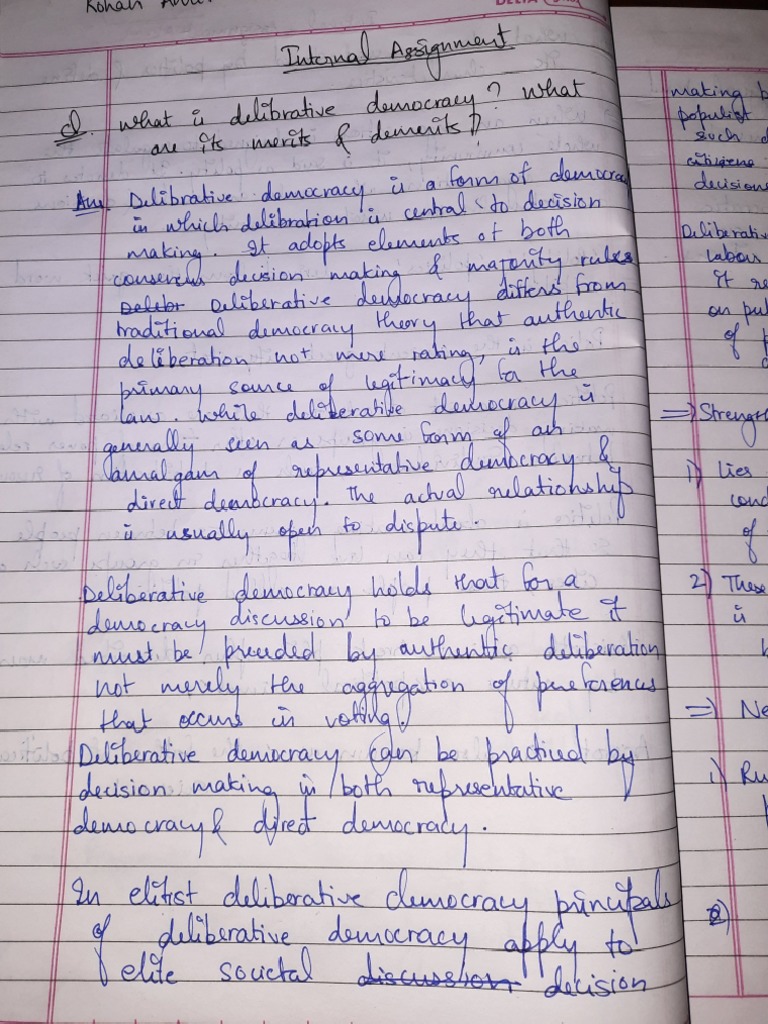 Rohan
DELTA
Internal Assignment
Q. What is delibrative democracy? What
are its merits & demerits?
Ans Delibrative democracy is a form of democracy
in which delibration is central to decision
making. It adopts elements of both
consensus decision making & majority rules
Delibr Deliberative democracy differs from
traditional democracy theory that authentic
deliberation not mere rating, is the
primary source of legitimacy for the
law. While deliberative democracy is
generally seen as some form of an
amalgam of representative democracy &
direct democracy. The actual relationship
is usually open to dispute.
Deliberative democracy holds that for a
democracy discussion to be legitimate it
must be preceded by authentic deliberation
not merely the aggregation of preferences
that occurs in voting.
Deliberative democracy can be practiced by
decision making in both representative
democracy & direct democracy.
In elitist deliberative democracy principals
of deliberative democracy apply to
elite societal discussion decision
making b
populist
such
citizens
decisions
Deliberativ
labour
It re
on pub
of
=> Strength
1) Lies
cond
of
2) These
is
=> Ne
1) Ru
2)